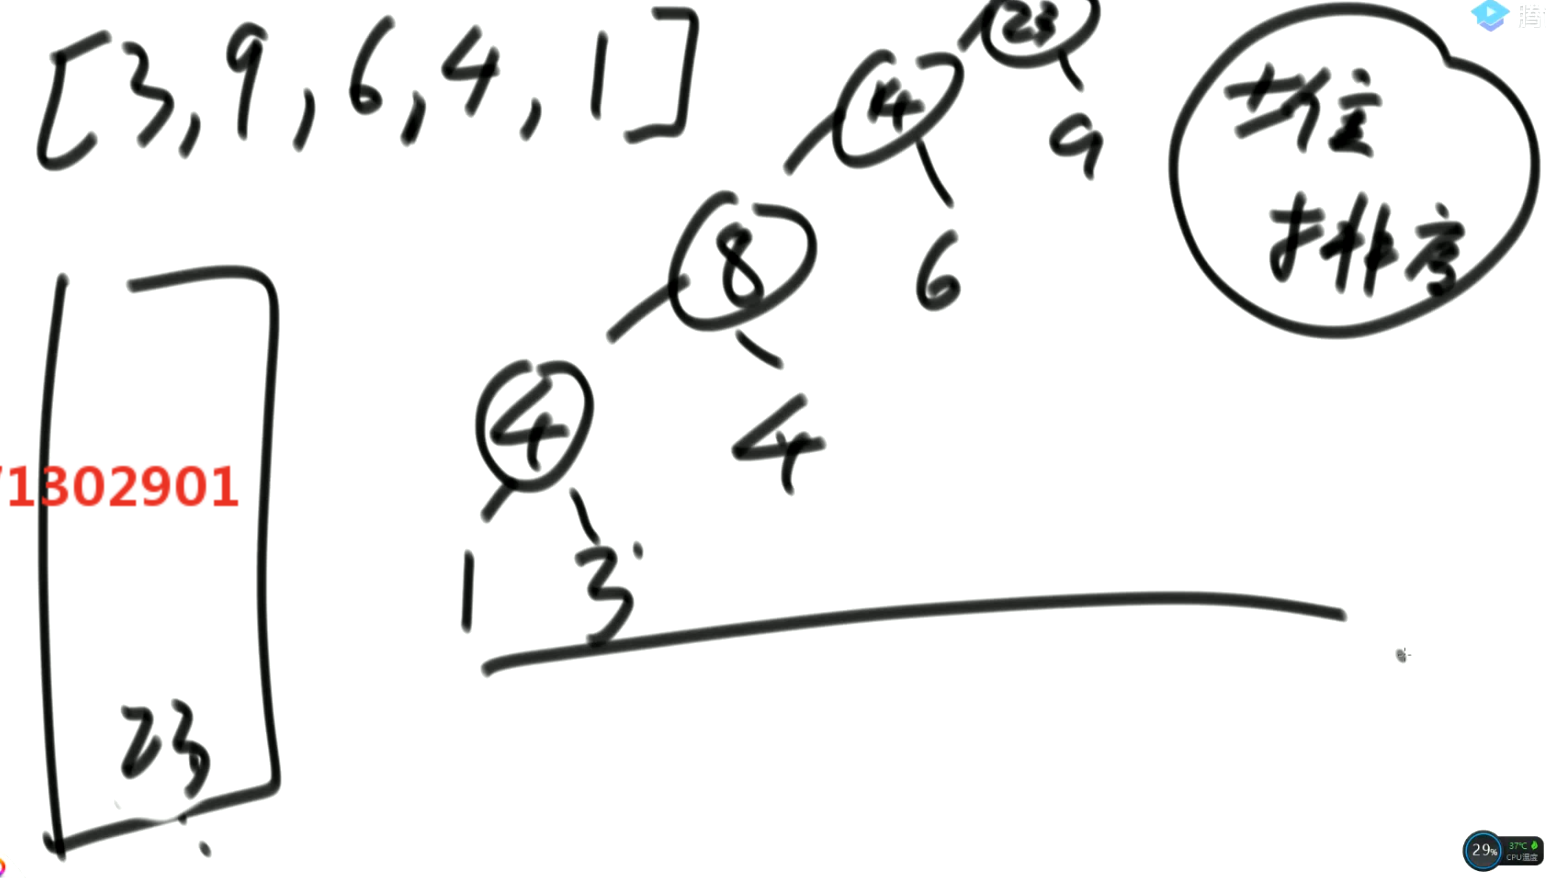 [3, 9, 6, 4, 1]
23
14
9
8
6
4
4
1 3
23
排序
71302901
腾
29%
37℃
CPU温度